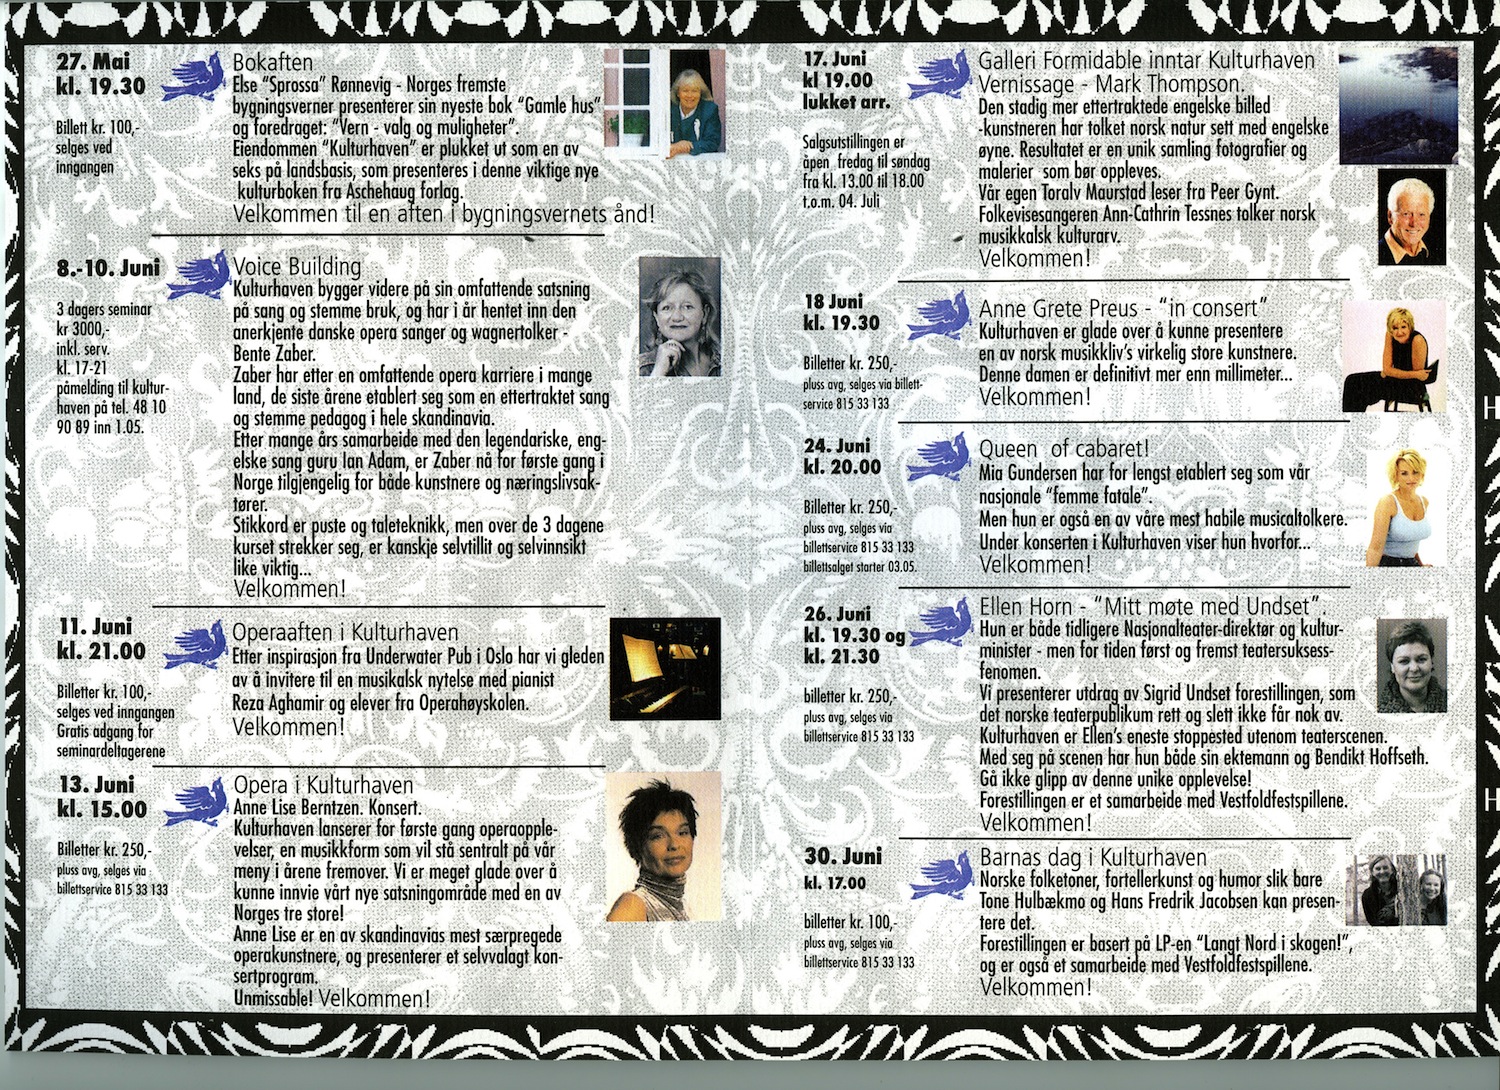 27. Mai
kl. 19.30
Billett kr. 100,-
selges ved
inngangen
Bokaften
Else “Sprossa” Rønnevig - Norges fremste
bygningsverner presenterer sin nyeste bok “Gamle hus”
og foredraget: “Vern - valg og muligheter”.
Eiendommen “Kulturhaven” er plukket ut som en av
seks på landsbasis, som presenteres i denne viktige nye
kulturboken fra Aschehaug forlag.
Velkommen til en aften i bygningsvernets ånd!
8.-10. Juni
3 dagers seminar
kr 3000,-
inkl. serv.
kl. 17-21
påmelding til kultur-
haven på tel. 48 10
90 89 inn 1.05.
Voice Building
Kulturhaven bygger videre på sin omfattende satsning
på sang og stemme bruk, og har i år hentet inn den
anerkjente danske opera sanger og wagnertolker -
Bente Zaber.
Zaber har etter en omfattende opera karriere i mange
land, de siste årene etablert seg som en ettertraktet sang
og stemme pedagog i hele skandinavia.
Etter mange års samarbeide med den legendariske, eng-
elske sang guru Ian Adam, er Zaber nå for første gang i
Norge tilgjengelig for både kunstnere og næringslivsak-
tører.
Stikkord er puste og taleteknikk, men over de 3 dagene
kurset strekker seg, er kanskje selvtillit og selvinnsikt
like viktig...
Velkommen!
11. Juni
kl. 21.00
Billetter kr. 100,-
selges ved inngangen
Gratis adgang for
seminardeltagerene
Operaaften i Kulturhaven
Etter inspirasjon fra Underwater Pub i Oslo har vi gleden
av å invitere til en musikalsk nytelse med pianist
Reza Aghamir og elever fra Operahøyskolen.
Velkommen!
13. Juni
kl. 15.00
Billetter kr. 250,-
pluss avg, selges via
billettservice 815 33 133
Opera i Kulturhaven
Anne Lise Berntzen. Konsert.
Kulturhaven lanserer for første gang operaopple-
velser, en musikkform som vil stå sentralt på vår
meny i årene fremover. Vi er meget glade over å
kunne innvie vårt nye satsningområde med en av
Norges tre store!
Anne Lise er en av skandinavias mest særpregede
operakunstnere, og presenterer et selvvalagt kon-
sertprogram.
Unmissable! Velkommen!
17. Juni
kl 19.00
lukket arr.
Salgsutstillingen er
åpen fredag til søndag
fra kl. 13.00 til 18.00
t.o.m. 04. Juli
Galleri Formidable inntar Kulturhaven
Vernissage - Mark Thompson.
Den stadig mer ettertraktede engelske billed
-kunstneren har tolket norsk natur sett med engelske
øyne. Resultatet er en unik samling fotografier og
malerier som bør oppleves.
Vår egen Toralv Maurstad leser fra Peer Gynt.
Folkevisesangeren Ann-Cathrin Tessnes tolker norsk
musikkalsk kulturarv.
Velkommen!
18 Juni
kl. 19.30
Billetter kr. 250,-
pluss avg, selges via billett-
service 815 33 133
Anne Grete Preus - “in consert”
Kulturhaven er glade over å kunne presentere
en av norsk musikkliv’s virkelig store kunstnere.
Denne damen er definitivt mer enn millimeter...
Velkommen!
24. Juni
kl. 20.00
Billetter kr. 250,-
pluss avg, selges via
billettservice 815 33 133
billettsalget starter 03.05.
Queen of cabaret!
Mia Gundersen har for lengst etablert seg som vår
nasjonale “femme fatale”.
Men hun er også en av våre mest habile musicaltolkere.
Under konserten i Kulturhaven viser hun hvorfor...
Velkommen!
26. Juni
kl. 19.30 og
kl. 21.30
billetter kr. 250,-
pluss avg, selges via
billettservice 815 33 133
Ellen Horn - “Mitt møte med Undset”.
Hun er både tidligere Nasjonalteater-direktør og kultur-
minister - men for tiden først og fremst teatersuksess-
fenomen.
Vi presenterer utdrag av Sigrid Undset forestillingen, som
det norske teaterpublikum rett og slett ikke får nok av.
Kulturhaven er Ellen’s eneste stoppested utenom teaterscenen.
Med seg på scenen har hun både sin ektemann og Bendikt Hoffseth.
Gå ikke glipp av denne unike opplevelse!
Forestillingen er et samarbeide med Vestfoldfestspillene.
Velkommen!
30. Juni
kl. 17.00
billetter kr. 100,-
pluss avg, selges via
billettservice 815 33 133
Barnas dag i Kulturhaven
Norske folketoner, fortellerkunst og humor slik bare
Tone Hulbækmo og Hans Fredrik Jacobsen kan presen-
tere det.
Forestillingen er basert på LP-en “Langt Nord i skogen!”,
og er også et samarbeide med Vestfoldfestspillene.
Velkommen!
H
H